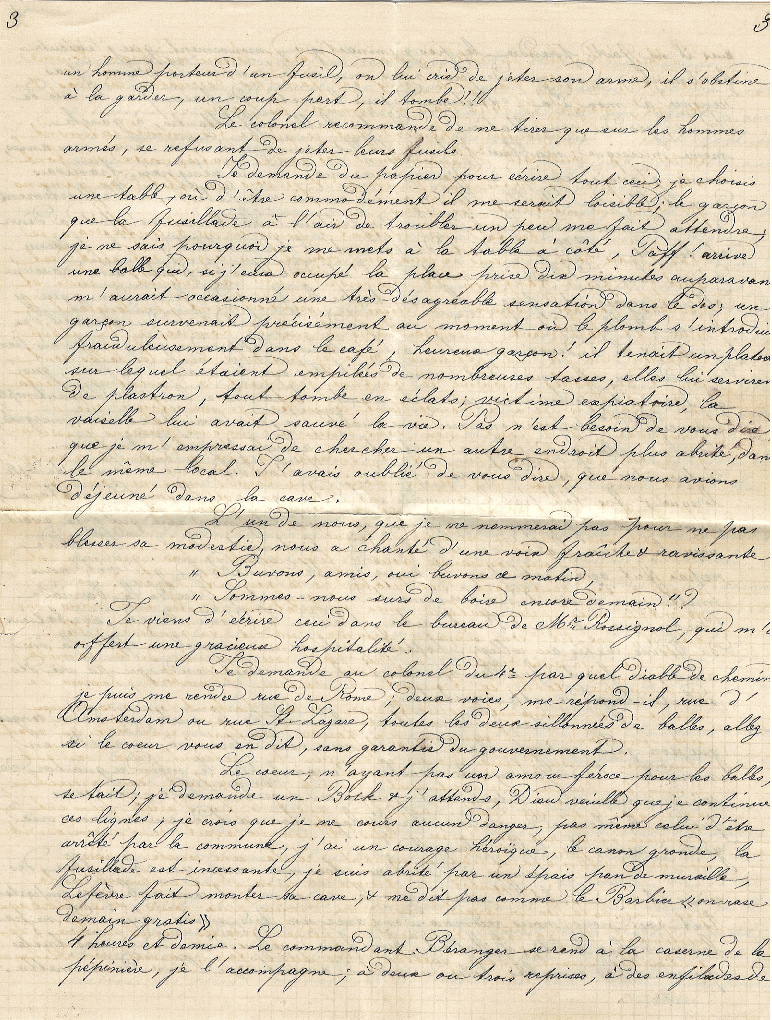 3 3
un homme porteur d'un fusil, on lui crie de jeter son arme, il s'obstine
à la garder, un coup part, il tombe!!!
Le colonel recommande de ne tirer que sur les hommes
armés, se refusant de jeter leurs fusils
Je demande du papier pour écrire tout ceci, je choisis
une table, où d'être commodément il me serait loisible; le garçon
que la fusillade à l'air de troubler un peu me fait attendre;
je ne sais pourquoi je me mets à la table à côté, Paff! arrive
une balle qui, si j'eus occupé la place prise dix minutes auparavan
m'aurait occasionné une très désagréable sensation dans le dos; un
garçon survenait précisément au moment où le plomb s'introdui
frauduleusement dans le café, heureux garçon! il tenait un platea
sur lequel étaient empilées de nombreuses tasses, elles lui serviren
de plastron, tout tombe en éclats; victime expiatoire, la
vaiselle lui avait sauvé la vie. Pas n'est besoin de vous dire
que je m'empressai de chercher un autre endroit plus abrité, dan
le même local. J'avais oublié de vous dire, que nous avions
déjeuné dans la cave.
L'un de nous, que je ne nommerai pas pour ne pas
blesser sa modestie, nous a chanté d'une voix fraîche & ravissante
" Buvons, amis, oui buvons ce matin,
" Sommes-nous surs de boire encore demain!"?
Je viens d'écrire ceci dans le bureau de Mr. Rossignol, qui m'a
offert une gracieuse hospitalité.
Je demande au colonel du 4e par quel diable de chemin
je puis me rendre rue de Rome; deux voies, me répond-il, rue d'
Amsterdam ou rue St Lazare, toutes les deux sillonnées de balles, allez
si le coeur vous en dit, sans garantie du gouvernement.
Le coeur, n'ayant pas un amour féroce pour les balles,
se tait; je demande un Bock & j'attends, Dieu veuille que je continue
ces lignes, je crois que je ne cours aucun danger, pas même celui d'être
arrêté par la commune, j'ai un courage héroïque, le canon gronde, la
fusillade est incessante, je suis abrité par un épais pan de muraille,
Lefèvre fait monter sa cave, & ne dit pas comme le Barbier «on rase
demain gratis»
4 heures et demie. Le commandant Béranger se rend à la caserne de la
pépinière, je l'accompagne; à deux ou trois reprises, à des enfilades de